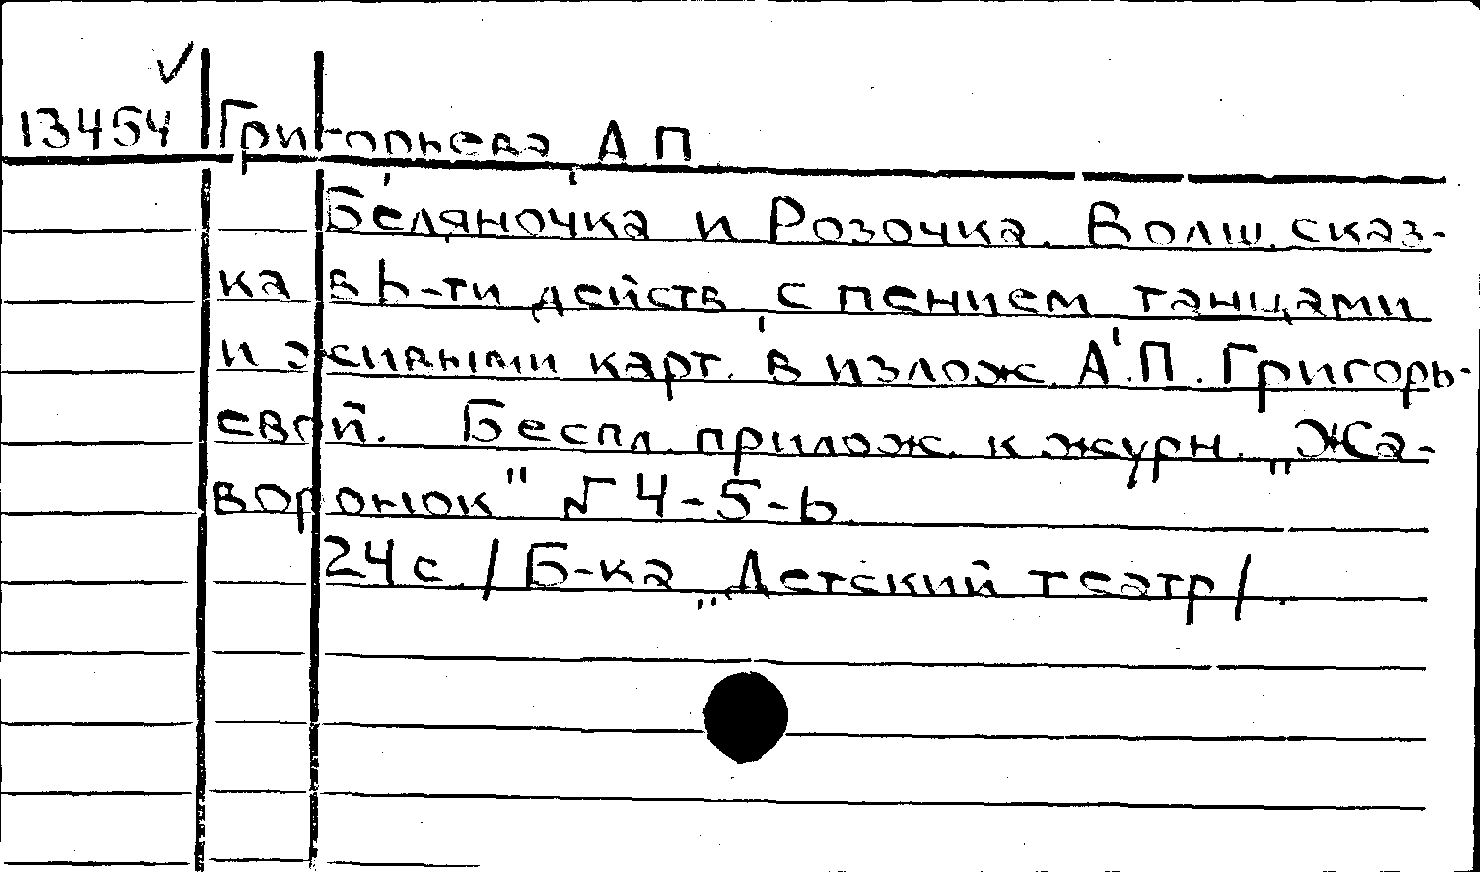 13454 Григорьева, А.П.
Беляночка и Розочка. Волш. сказ-
ка в 6-ти действ. с пением, танцами
и живыми карт. в излож. А.П. Григорь-
евой. Беспл. прилож. к журн. „Жа-
воронок" № 4-5-6.
24 с. / Б-ка „Детский театр/.